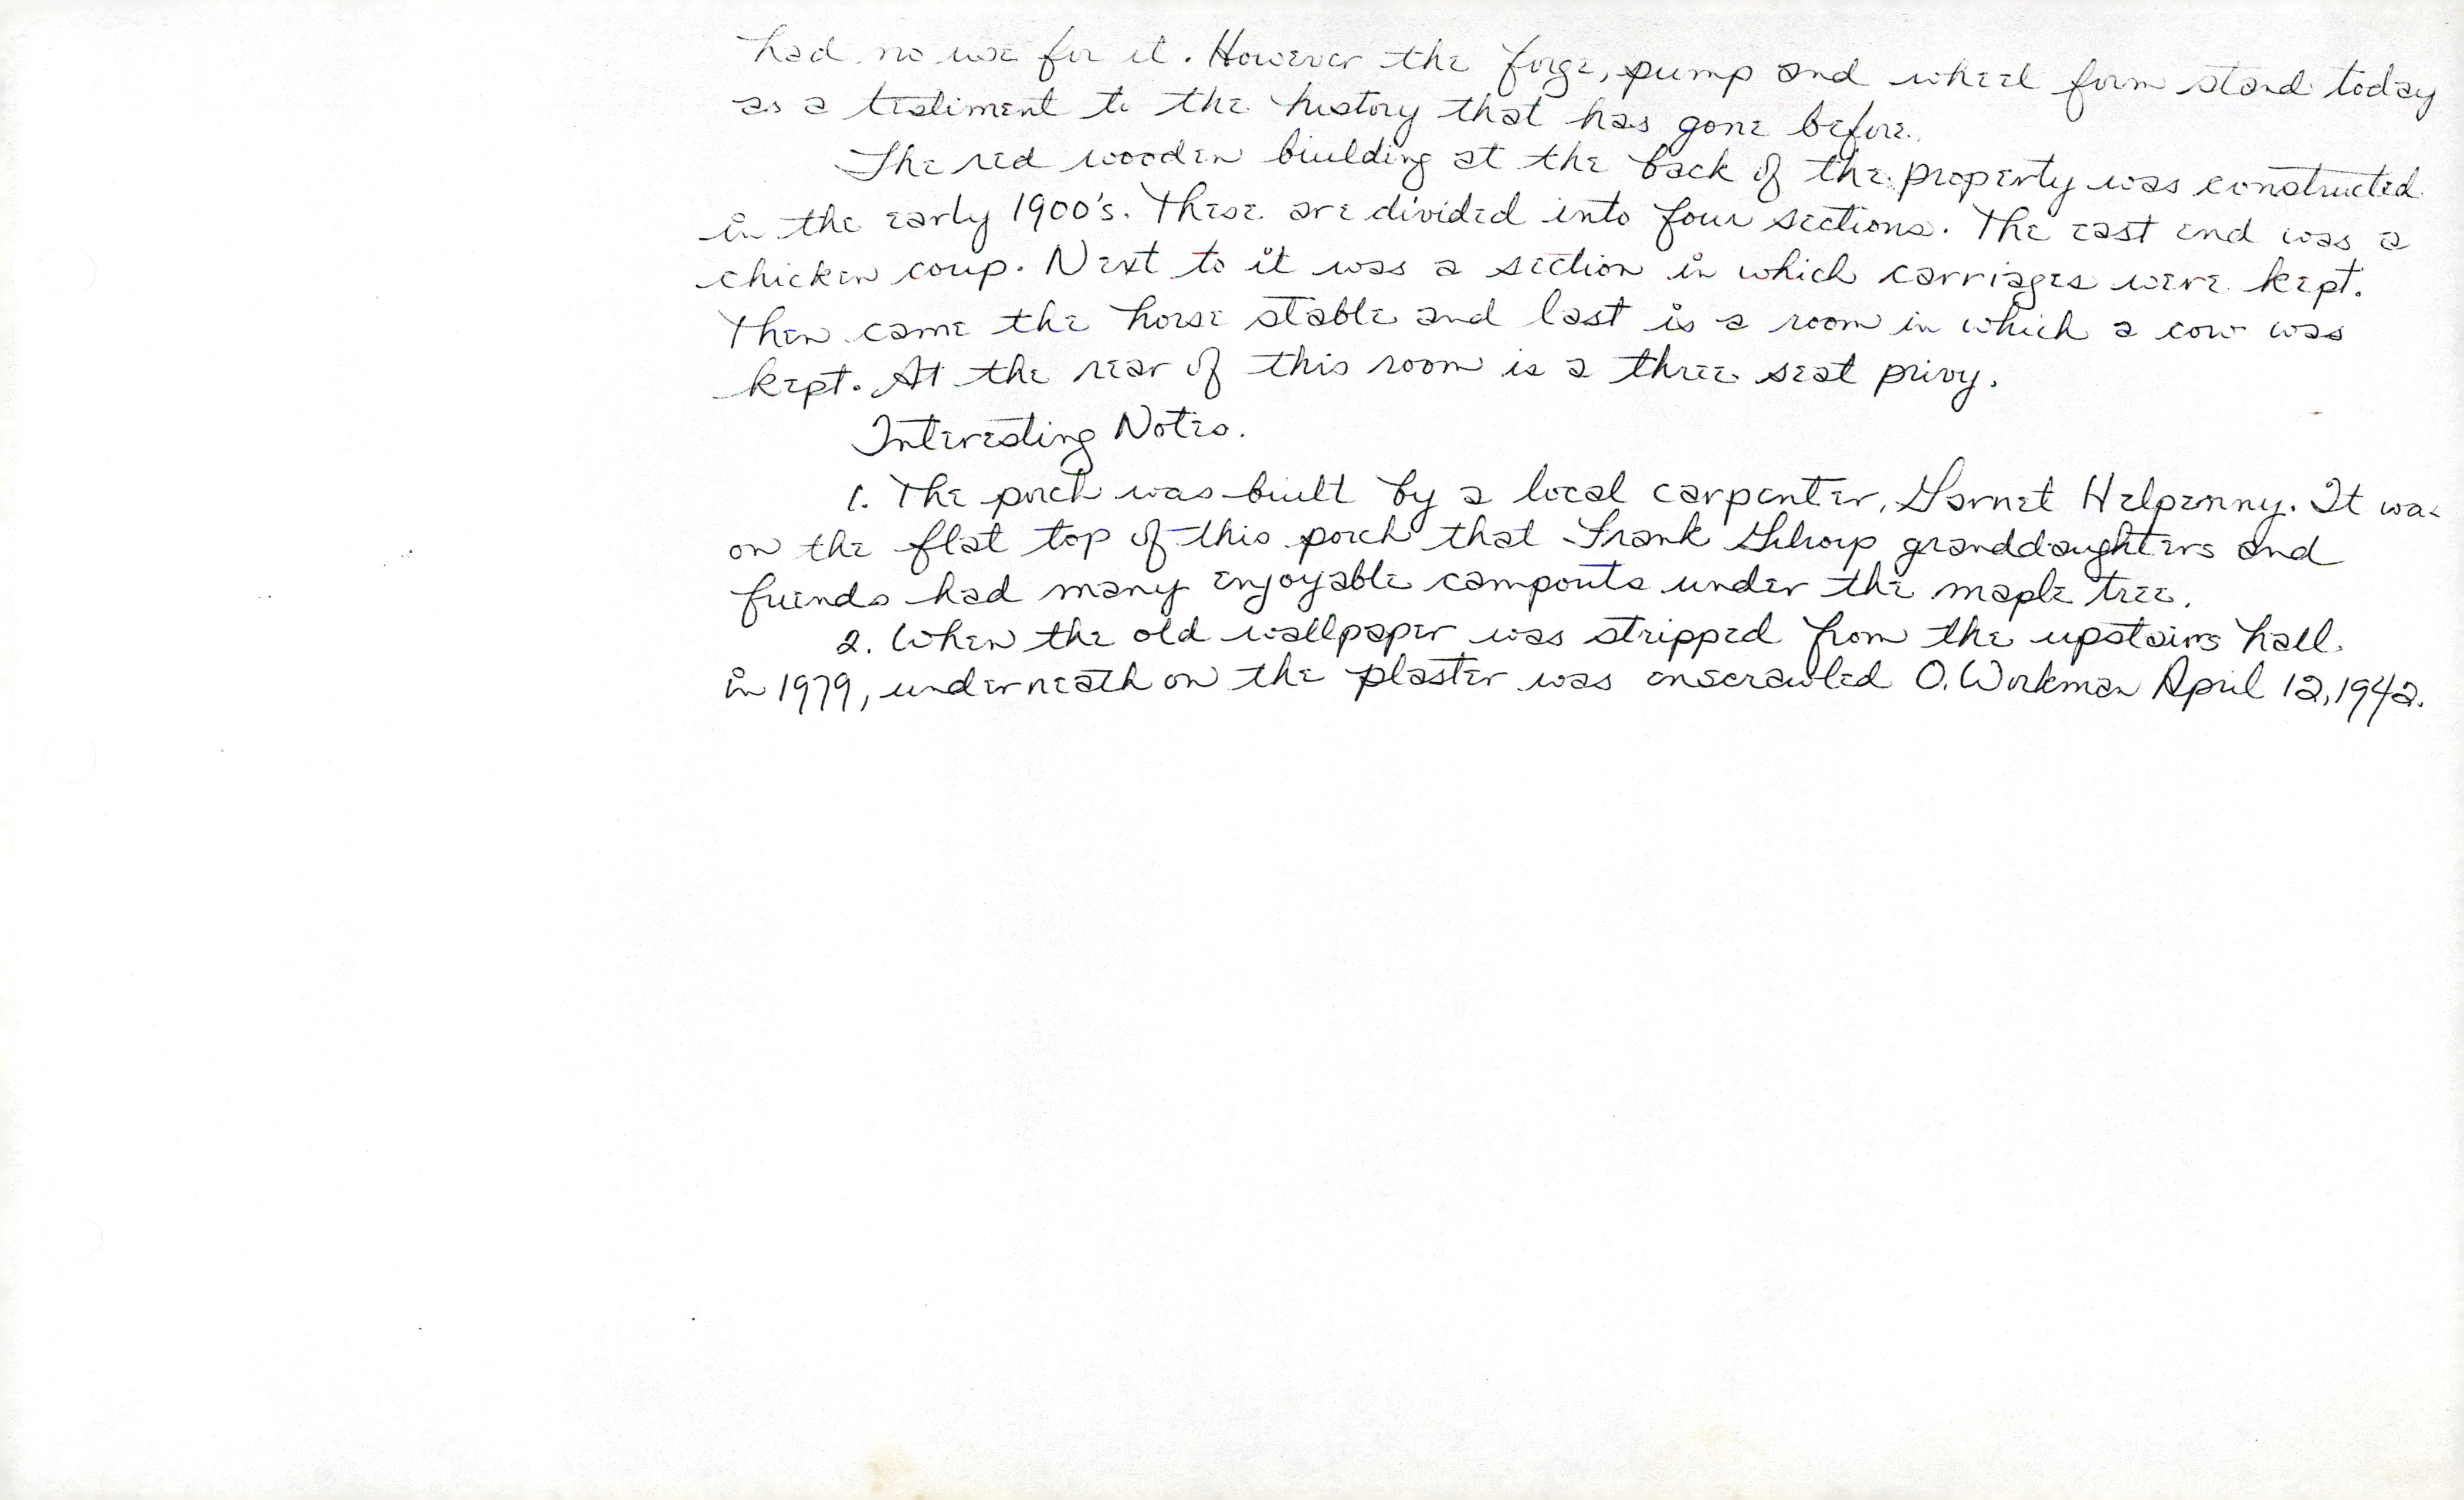 had no use for it. However the forge, pump and wheel form stand today
as a testiment to the history that has gone before.
The red wooden building at the back of the property was constructed
in the early 1900's. These are divided into four sections. The east end was a
chicken coup. Next to it was a section in which carriages were kept.
Then came the horse stable and last is a room in which a cow was
kept. At the rear of this room is a three seat privy.
Interesting Notes.
1. The porch was built by a local carpenter, Garnet Helpenny. It was
on the flat top of this porch that Frank granddaughters and
friends had many enjoyable campouts under the maple tree.
2. When the old wallpaper was stripped from the upstairs hall
in 1979, underneath on the plaster was enscrawled O. Workman April 12, 1942.